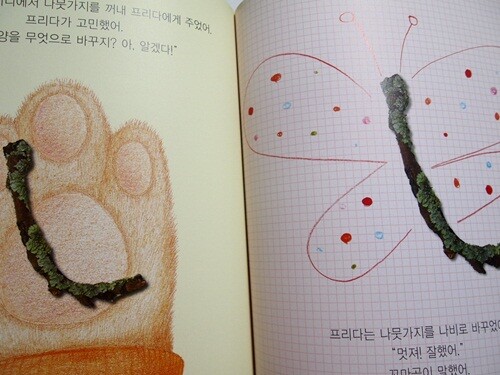 나뭇가지를 꺼내 프리다에게 주었어.
프리다가 고민했어.
무엇으로 바꾸지? 아, 알겠다!"
프리다는 나뭇가지를 나비로 바꾸었어
"멋져! 잘했어."
꼬마곰이 말했어.